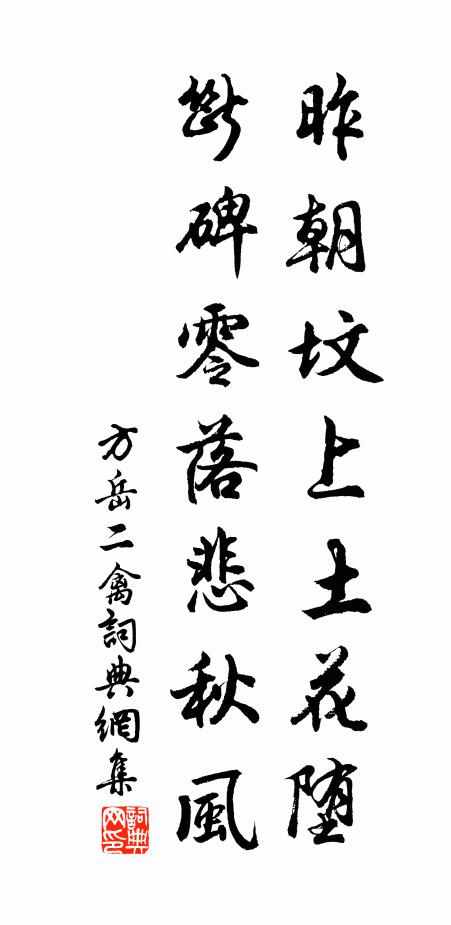 昨朝坟上土花堕
断碑零落悲秋風
方岳二禽詞典網集
詞典网印